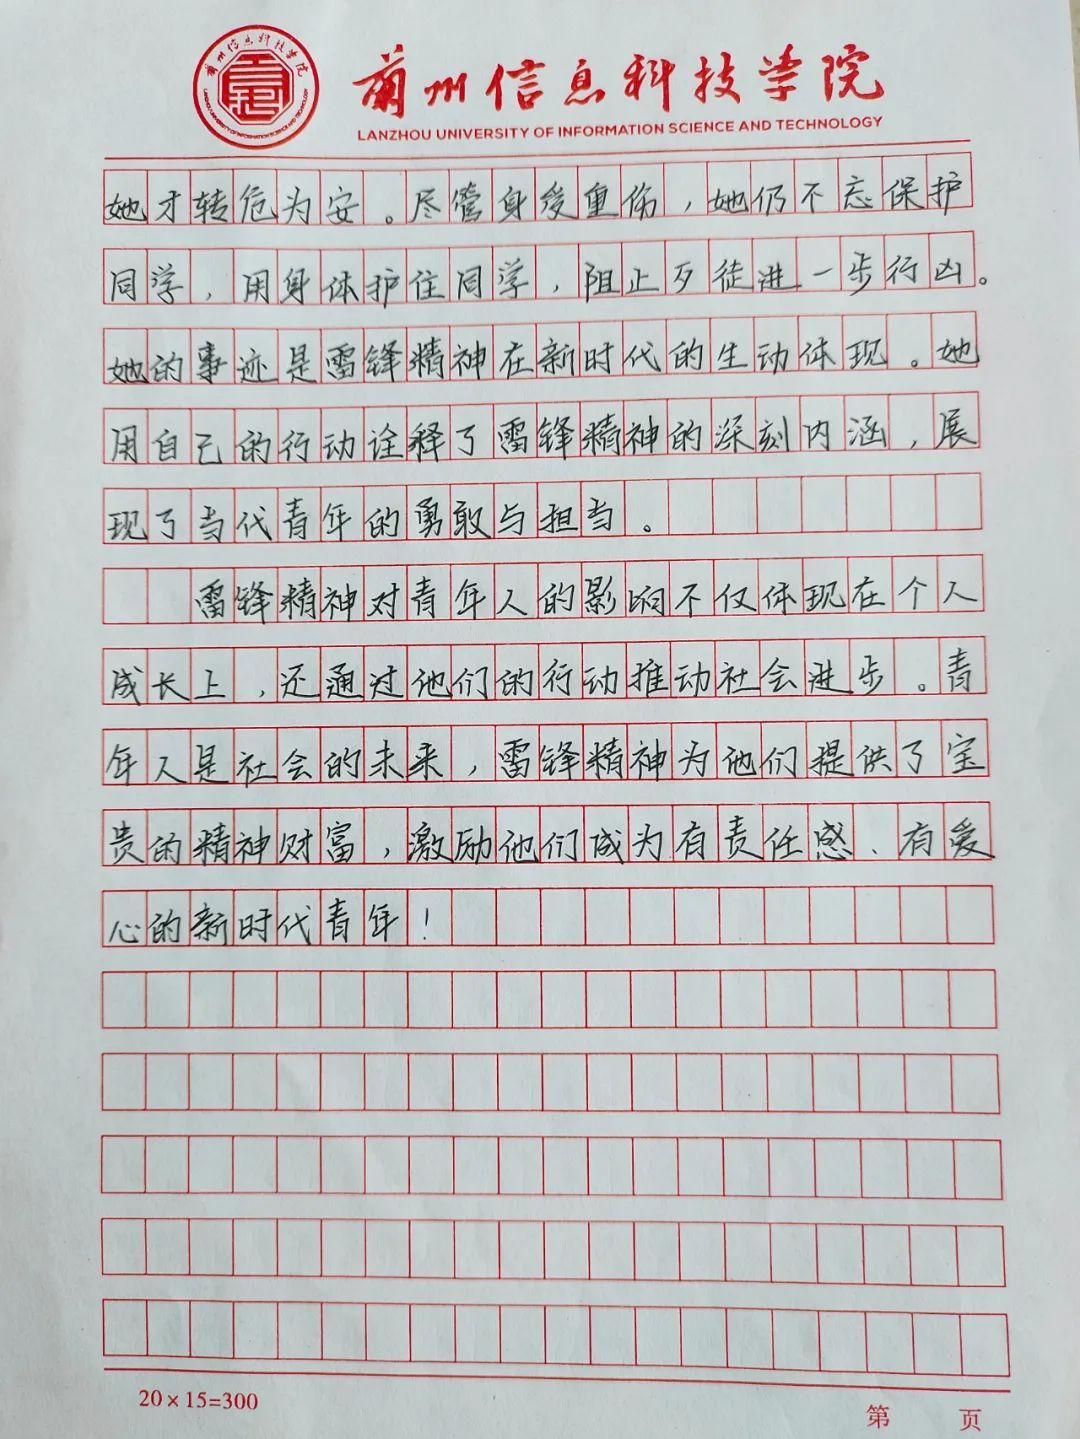 兰州信息科技学院
兰州信息科技学院
LANZHOU UNIVERSITY OF INFORMATION SCIENCE AND TECHNOLOGY
她才转危为安。尽管身受重伤，她仍不忘保护
同学，用身体护住同学，阻止歹徒进一步行凶。
她的事迹是雷锋精神在新时代的生动体现。她
用自己的行动诠释了雷锋精神的深刻内涵，展
现了当代青年的勇敢与担当。
雷锋精神对青年人的影响不仅体现在个人
成长上，还通过他们的行动推动社会进步。青
年人是社会的未来，雷锋精神为他们提供了宝
贵的精神财富，激励他们成为有责任感、有爱
心的新时代青年！
20×15=300
第 页